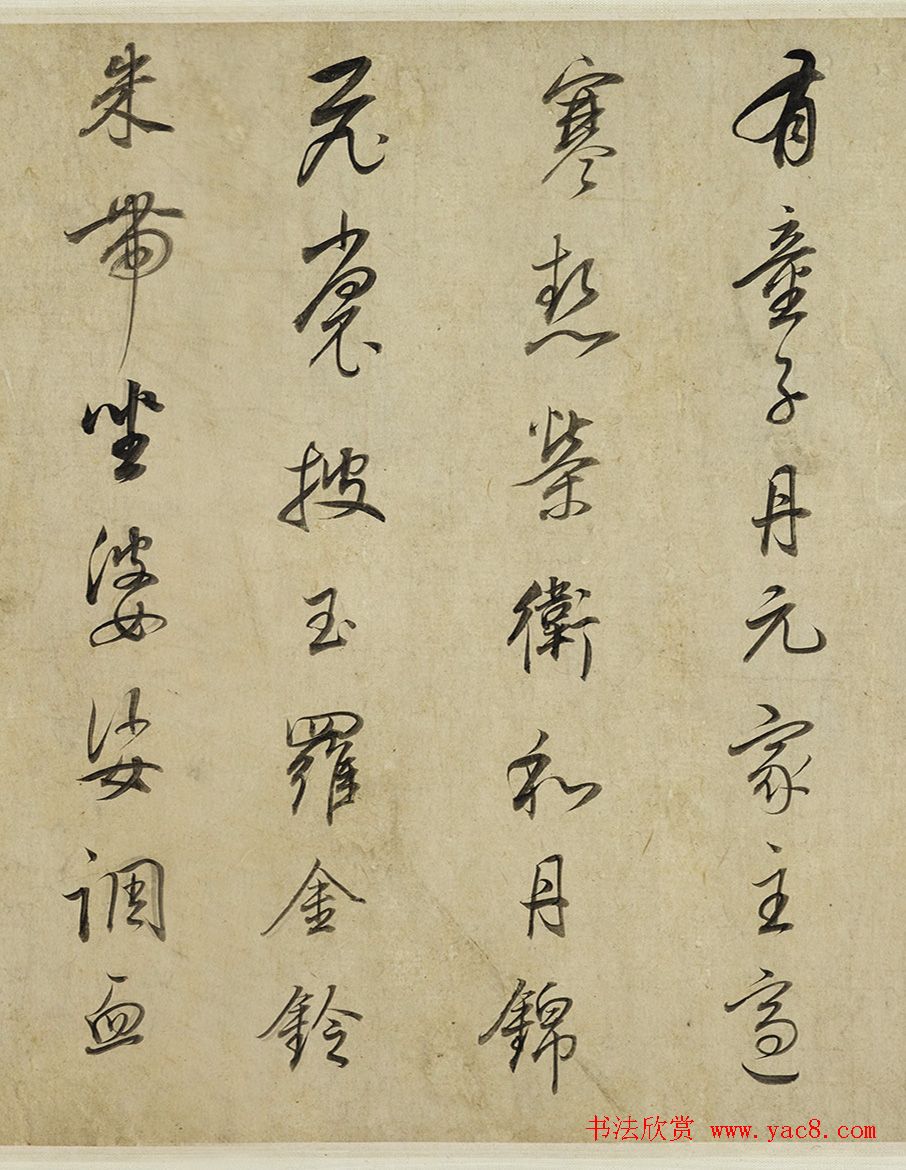 有童子丹元家主適
寒熱榮衛和丹錦
飛裳披玉羅金鈴
朱帶坐婆娑調血
书法欣赏 www.yac8.com